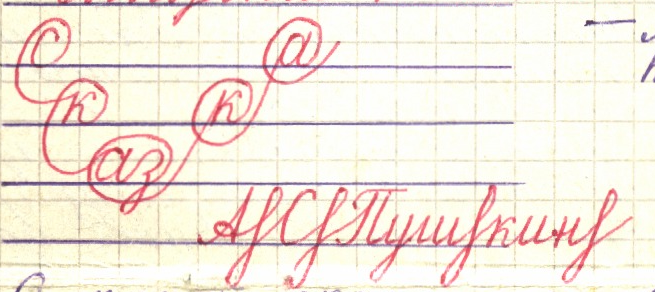 Сказка
А.С.Пушкин